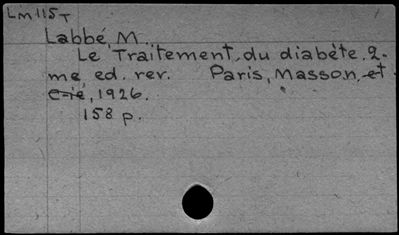 Lm115T
Labbé, M.
Le Traitement du diabète. 2-
me ed. rev. Paris, Masson et
c-ie, 1926.
158 p.